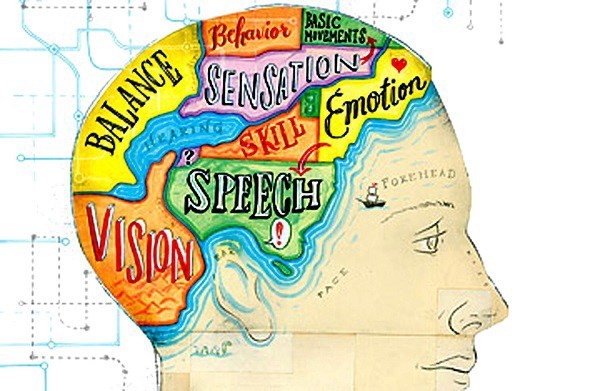 Behavior
BASIC
MOVEMENTS
BALANCE
SENSATION
Emotion
HEARING
SKILL
?
SPEECH
!
VISION
FOREHEAD
FACE